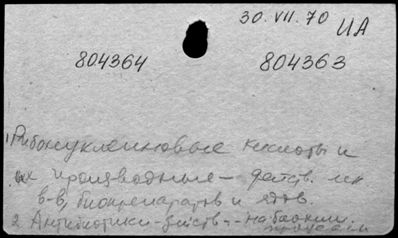 30.VII.70 ИА
804364 804363
1 Рибонуклеиновые кислоты и
их производные - действ. ле
в-в, биопрепаратов и ядов.
2. Антибиотики - действ. - на биохим.
процессы